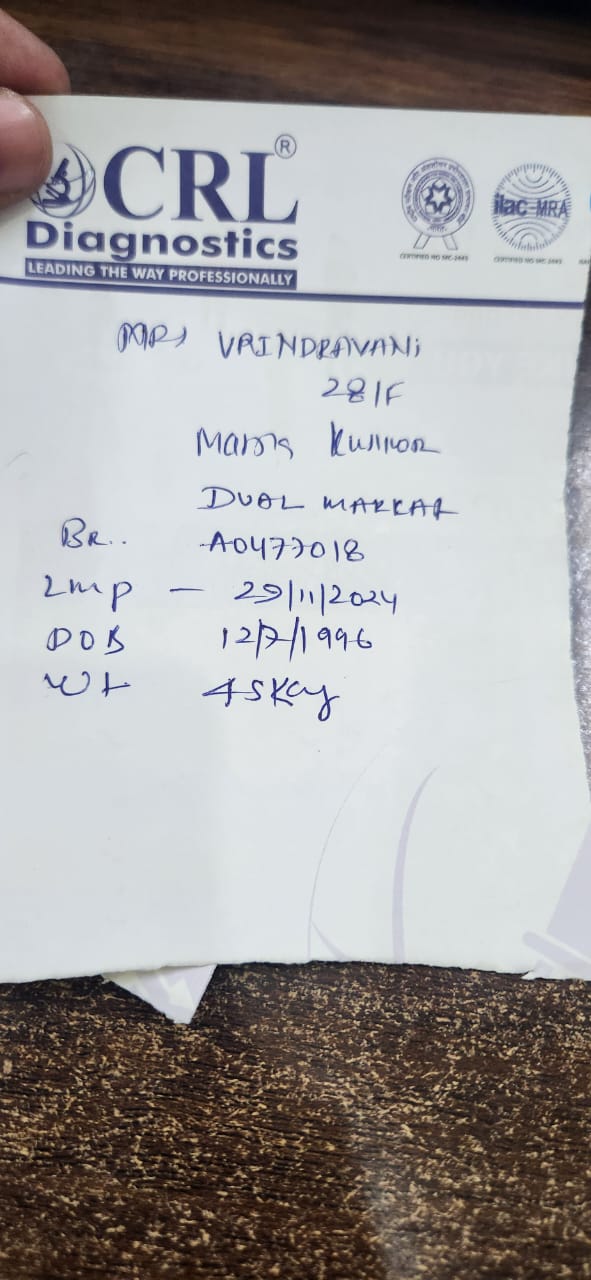 CRL ®
Diagnostics
LEADING THE WAY PROFESSIONALLY
ilac-MRA
CERTIFIED NO MC-2445
CERTIFIED NO MC-2445
MRS VRINDRAVANi
28/F
Kumor
DUAL MARKAR
BR.. A0477018
LMP - 29/11/2024
DOB 12/7/1996
Wt 45Kg